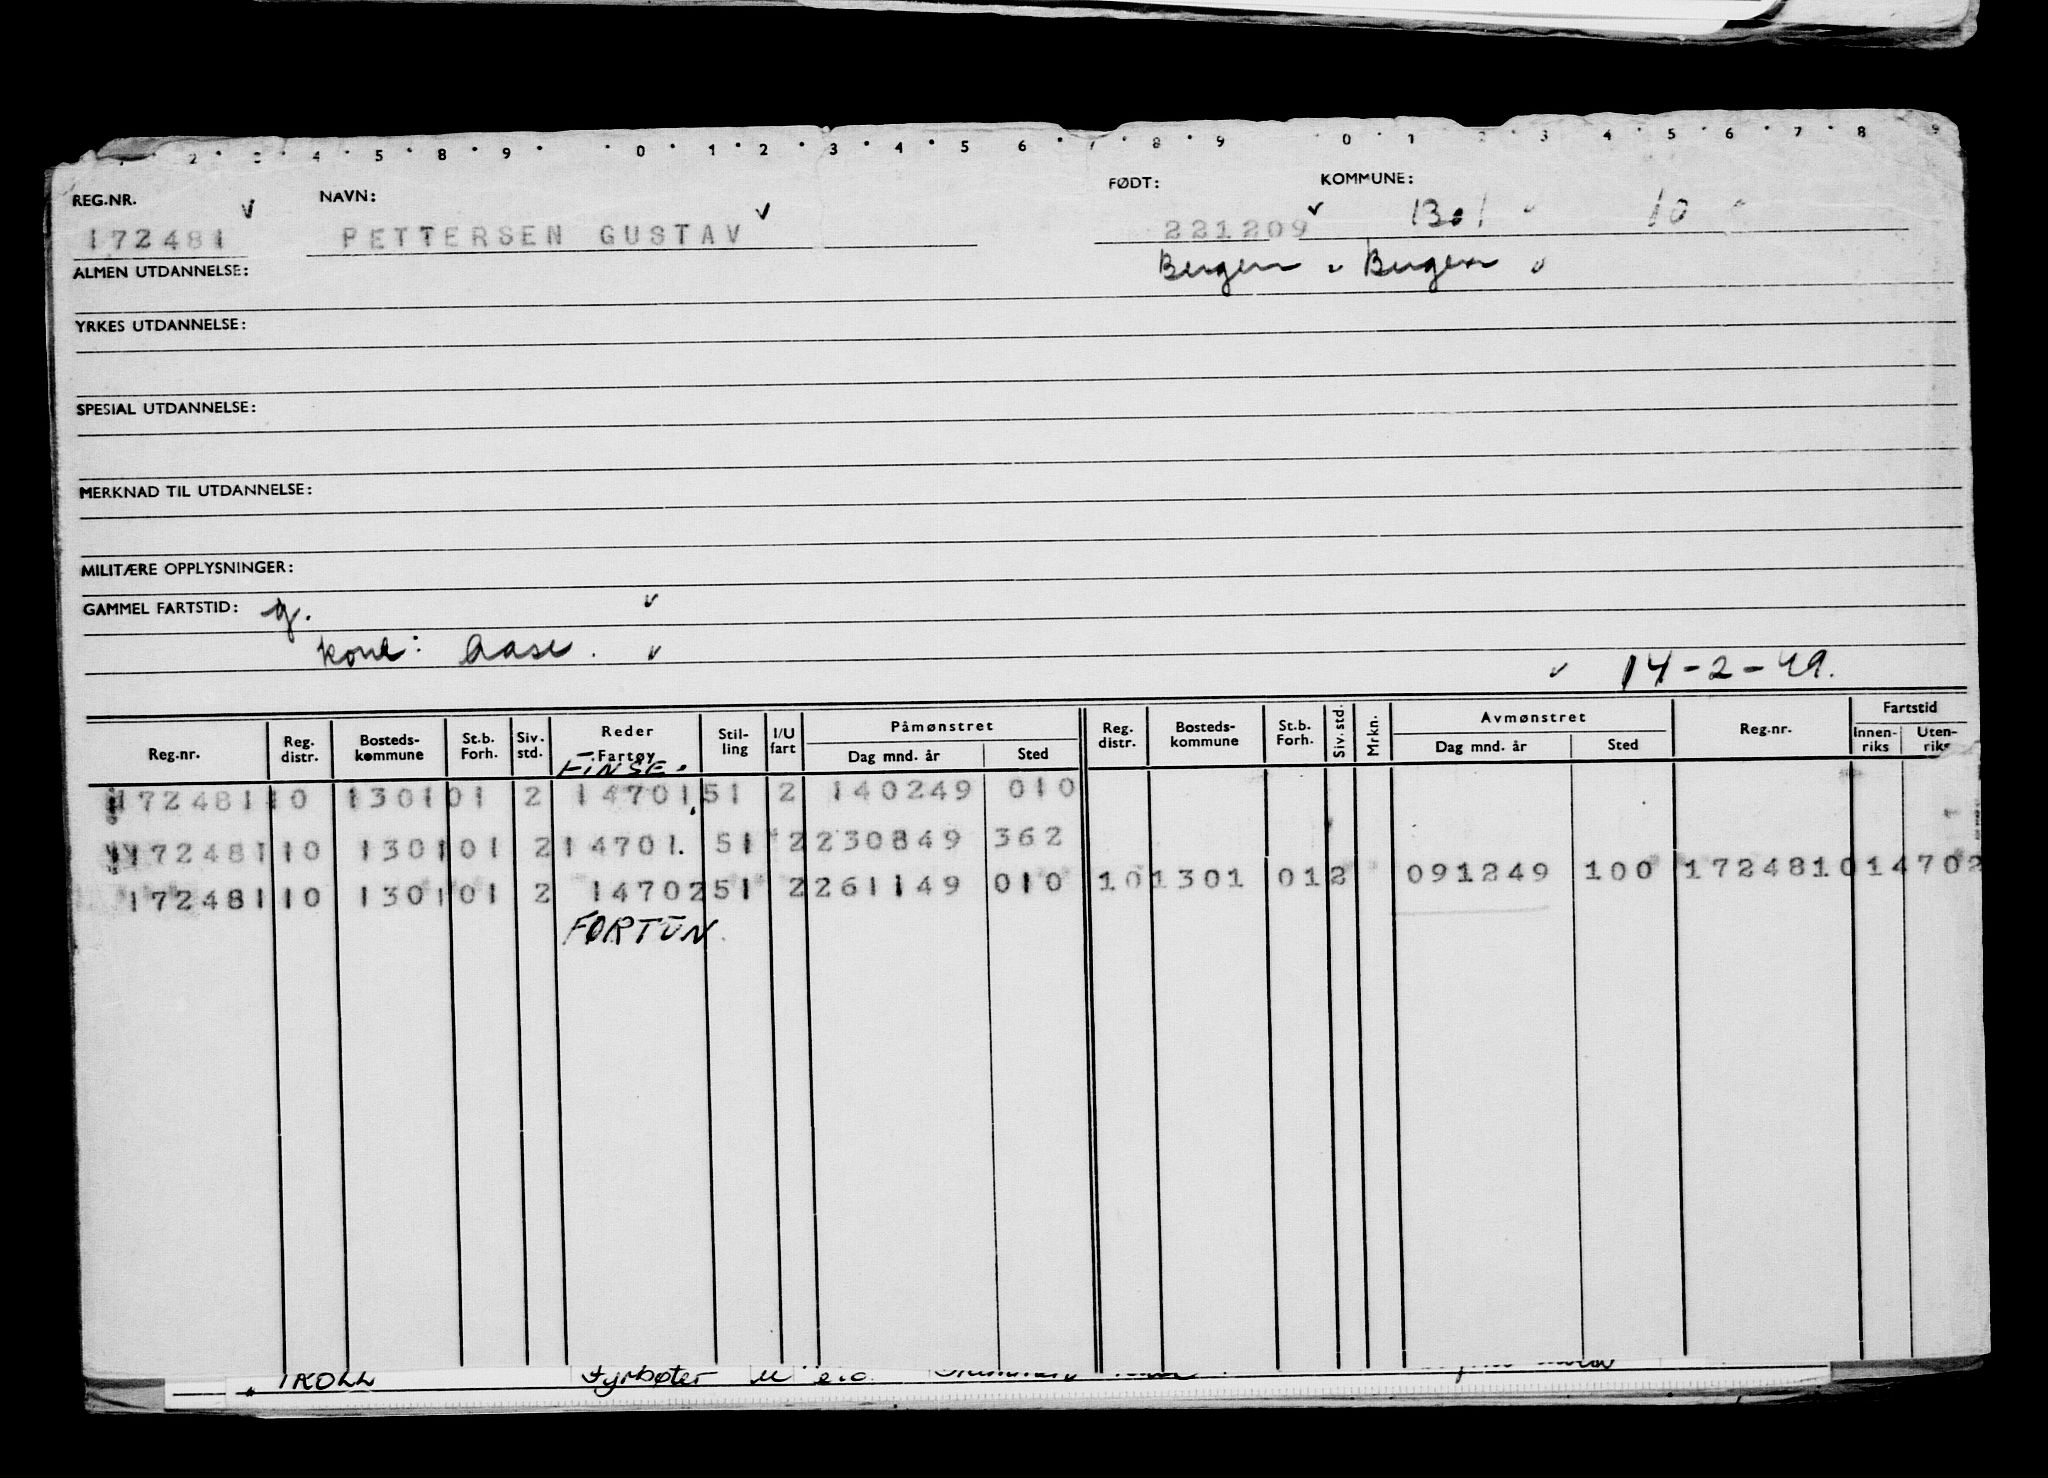 1 2 3 4 5 8 9 0 1 2 3 4 5 6 7 8 9 0 1 2 3 4 5 6 7 8 9
REG.NR. NAVN: FØDT: KOMMUNE:
172481 PETTERSEN GUSTAV 221209 1301 10
ALMEN UTDANNELSE: Bergen Bergen
YRKES UTDANNELSE:
SPESIAL UTDANNELSE:
MERKNAD TIL UTDANNELSE:
MILITÆRE OPPLYSNINGER:
GAMMEL FARTSTID: g.
kone: Aase.
14-2-49.
Reg.nr. Reg. distr. Bosteds- kommune St.b. Forh. Siv. std. Reder Fartøy Stil- ling I/U fart Påmønstret Dag mnd. år Sted Reg. distr. Bosteds- kommune St.b. Forh. Siv. std. Mrkn. Avmønstret Dag mnd. år Sted Reg.nr. Fartstid Innen- riks Uten- riks
FINSE.
172481 10 1301 01 2 14701 51 2 140249 010
172481 10 1301 01 2 14701. 51 2 230849 362
172481 10 1301 01 2 14702 51 2 261149 010 10 1301 01 2 091249 100 172481 014702
FORTUN.
Fyrbøter